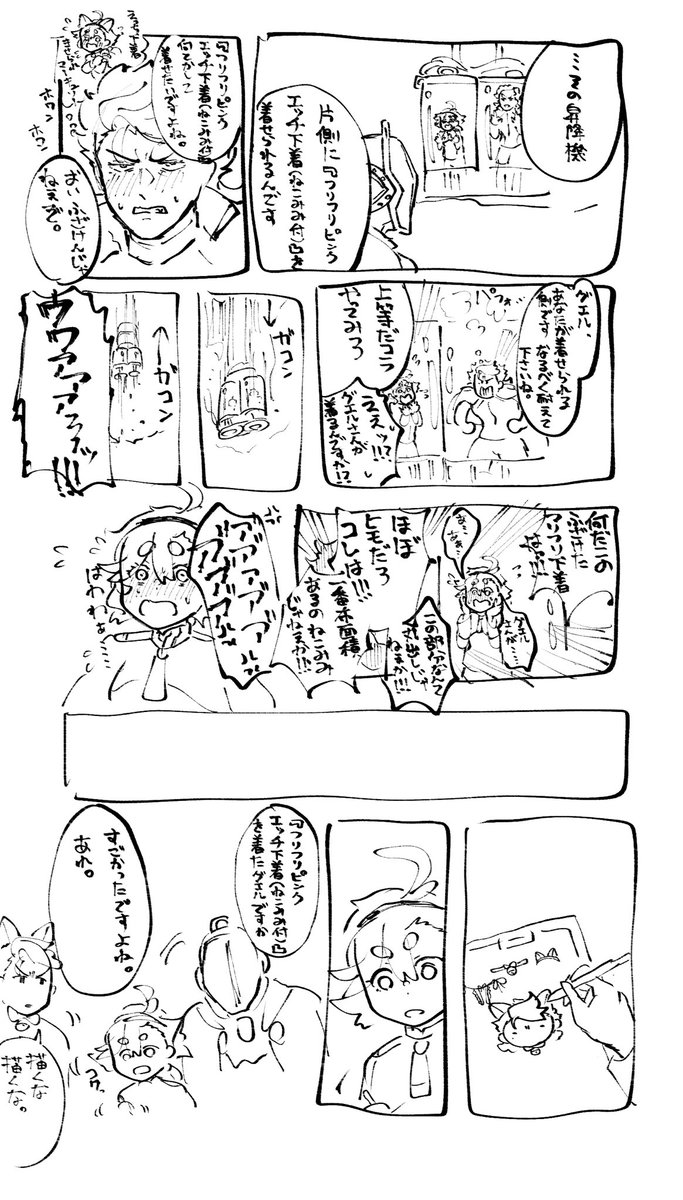 ミその昇降機
片側に『フリフリピンク
エッチ下着(ねこみみ付)』を
着せられるんです
『フリフリピンク
エッチ下着(ねこみみ付)
何とかして
着せたいですよね。
ホワン
ホワン
おいふざけんじゃ
ねぇぞ。
ダエル、
あなたが着せられる
側です なるべく耐えて
下さいね。
上等だコラ
やってみろ
ええッ!?
ダエルさんが
着るんですか!?
↓ガコン
←ガコン
ウワアアアアッ!!!
何だこの
ふざけた
フリフリ下着
はッ!!!
ダエル
さんが……
この部分なんて
丸出しじゃ
ねぇか!!!
ほぼ
ヒモだろ
コレは!!!
一番布面積
あるのねこみみ
じゃねぇか!!!
アアアアアアル
ブブブブブル
はわわぁ…
『フリフリピンク
エッチ下着(ねこみみ付)』
を着たダエルですか
すごかったですよね。
あれ。
コワッ
描くな
描くな。